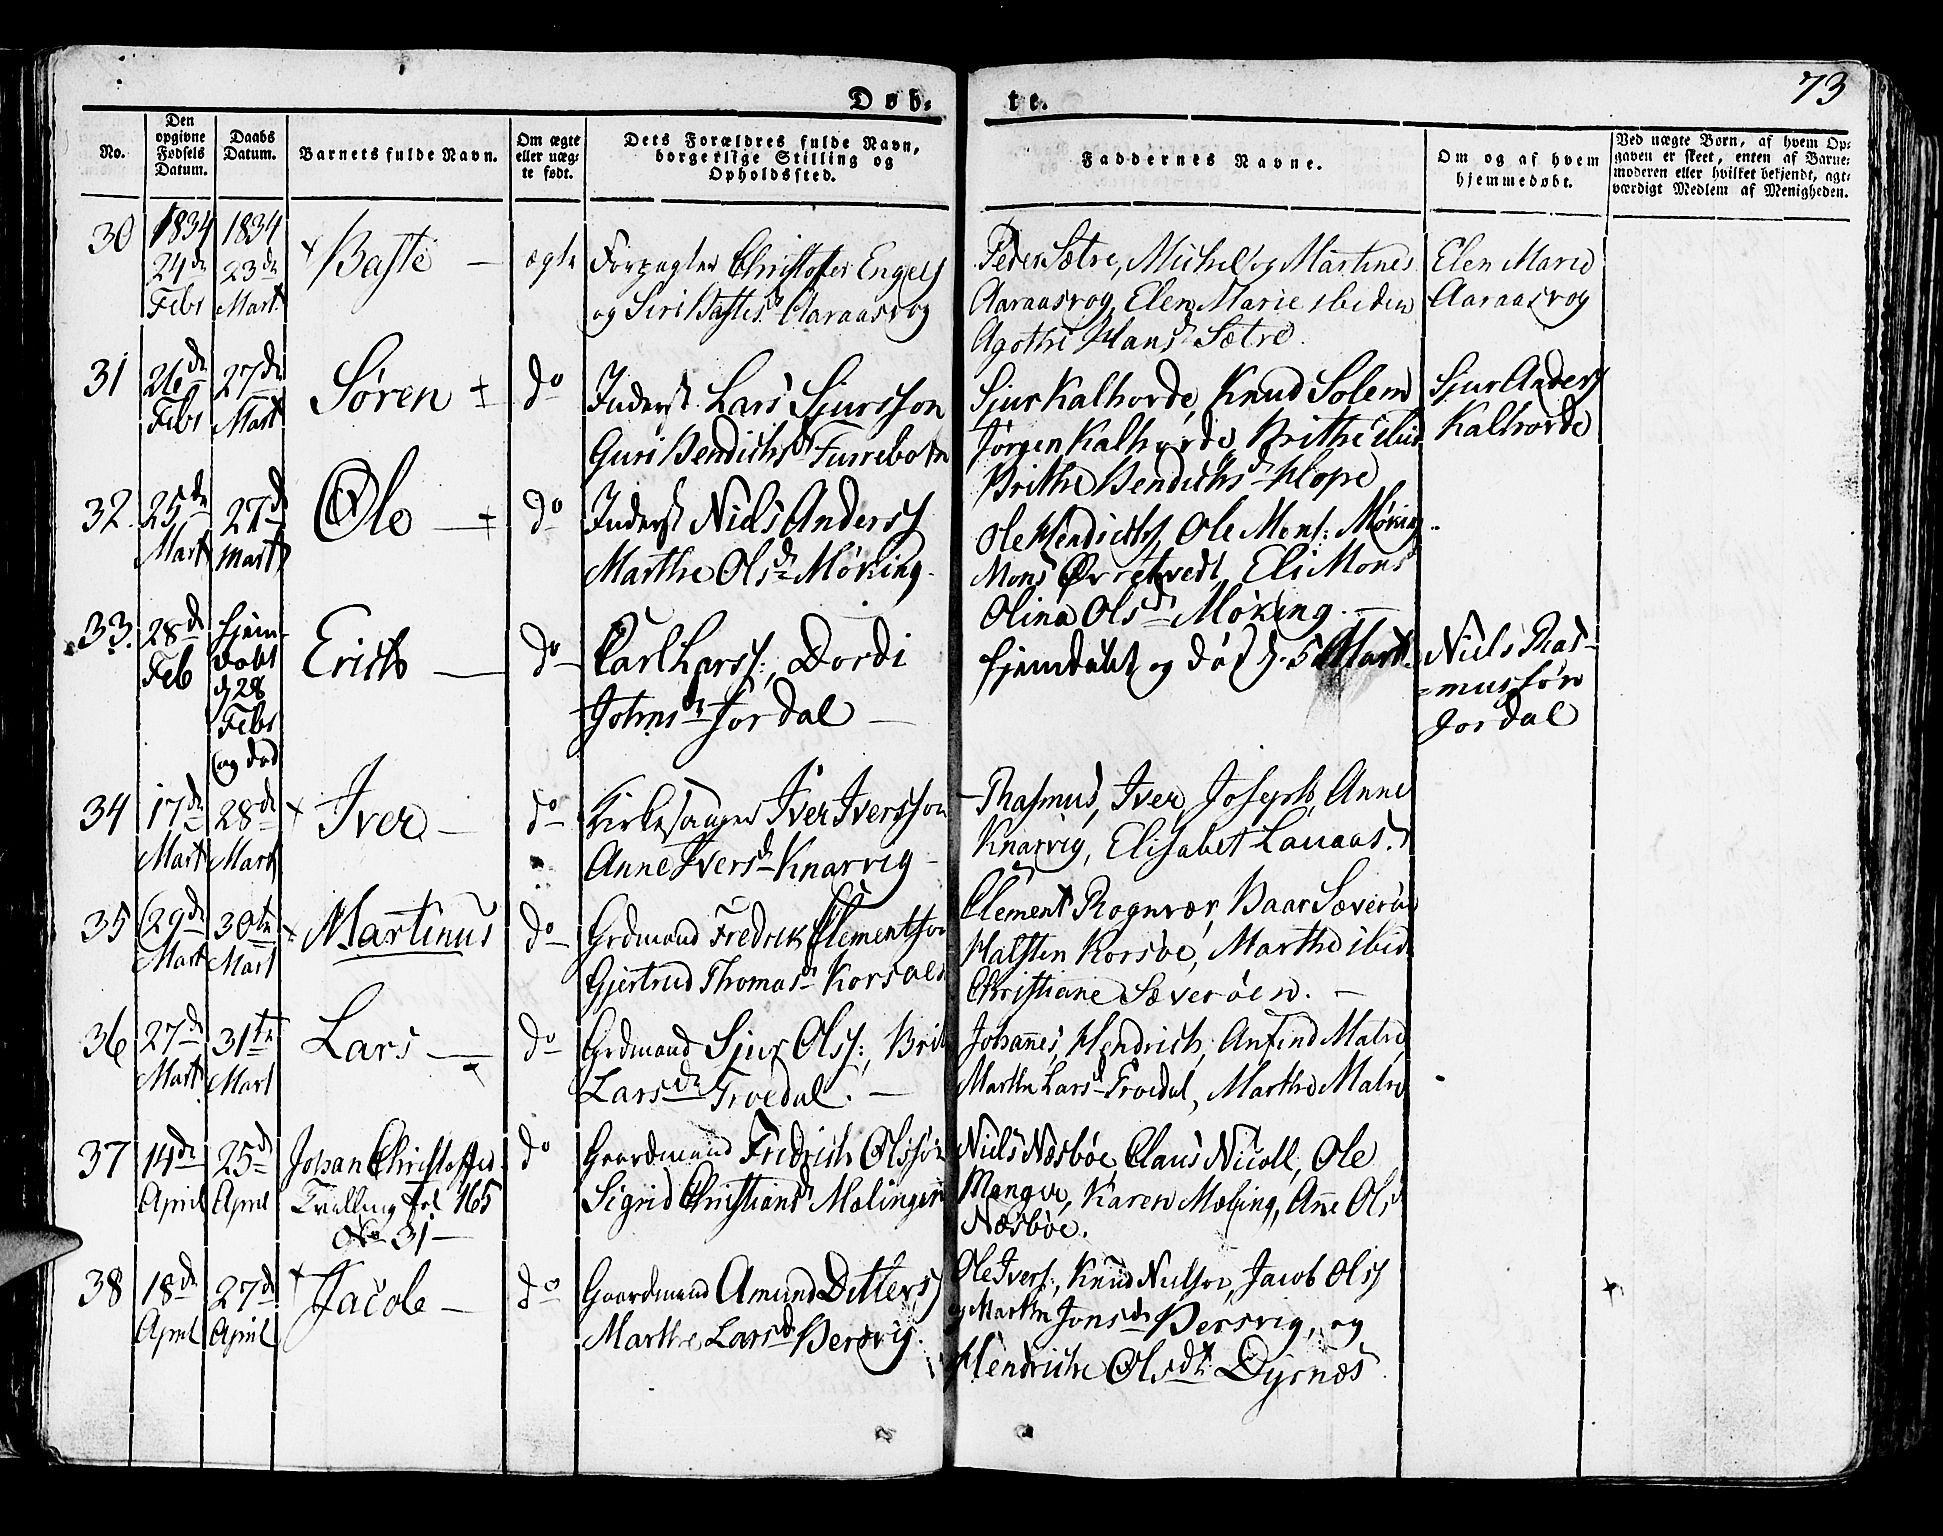 73
Døb- te.
No.
Den opgivne Fødsels Datum.
Daabs Datum.
Barnets fulde Navn.
Om ægte eller uægte født.
Dets Forældres fulde Navn, borgerlige Stilling og Opholdssted.
Faddernes Navne.
Om og af hvem hjemmedøbt.
Ved uægte Børn, af hvem Opgaven er skeet, enten af Barnemoderen eller hvilket bekjendt, agtværdigt Medlem af Menigheden.
30
1834 24de Febr
1834 23de Mart
Baste
ægte
Forpagter Christoffer Engels
og Siri Bastesd Aaraasvog
Peder Sætre, Michel og Martines
Aaraasvog, Elen Marie ibidem
Agothe Hansd Sætre.
Elen Marie
Aaraasvog
31
26de Febr
27de Mart
Søren
do
Inderst Lars Sjursson
Guri Bendichsd Furrebotn
Sjur Kalhovde, Knud Solem
Jørgen Kalhovde, Brithe ibid.
Brithe Bendichsd Hope
Sjur Anders
Kalhovde
32.
25de Mart
27d Mart
Ole
do
Inderst Niels Anders
Marthe Olsd Møking.
Ole Hendichs, Ole Mons: Møking
Mons Øvretvedt, Eli Mons
Olina Olsd Møking.
33.
28d Feb
hjemdøbt d 28 Febr og død
Erich
do
Carl Larss:, Dordi
Johnsdr Jordal
hjemdøbt og død d. 5 Mart.
Niels Ras-
mussøn
Jordal
34
17de Mart
28de Mart
Iver
do
Kirkesanger Iver Iversson
Anne Iversd Knarvig
Rasmus, Iver, Joseph, Anne
Knarvig, Elisabet Lauaas.
35
29de Mart
30te Mart
Martinus
do
Grdmand Fredrik Clementson
Gjertrud Thomasd Korsøen
Clement Rognvær, Baar Sæverøe
Halsten Korsøe, Marthe ibid
Christiane Sæverøen.
36
27de Mart
31te Mart
Lars
do
Grdmand Sjur Olss:, Brit
Larsdr Troedal.
Johannes, Hendrich, Anfind Matre
Marthe Larsd Troedal, Marthe Matre
37
14de April
25d April
Johan Christoffer
Tvilling fol 165
No 31
do
Gaardmand Fredrich Olssøn
Sigrid Christiansd Mælingen
Niels Næsbøe, Claus Nicoll, Ole
Manger, Karen Mæling, Anne Olsd
Næsbøe.
38
18de April
27de April
Jacob
do
Gaardmand Amund Ditlers
Marthe Larsd Bersvig.
Ole Ivers:, Knud Nielson, Jacob Olss
og Marthe Jonsdr Bersvig, og
Hendriche Olsdr Dyrnæs